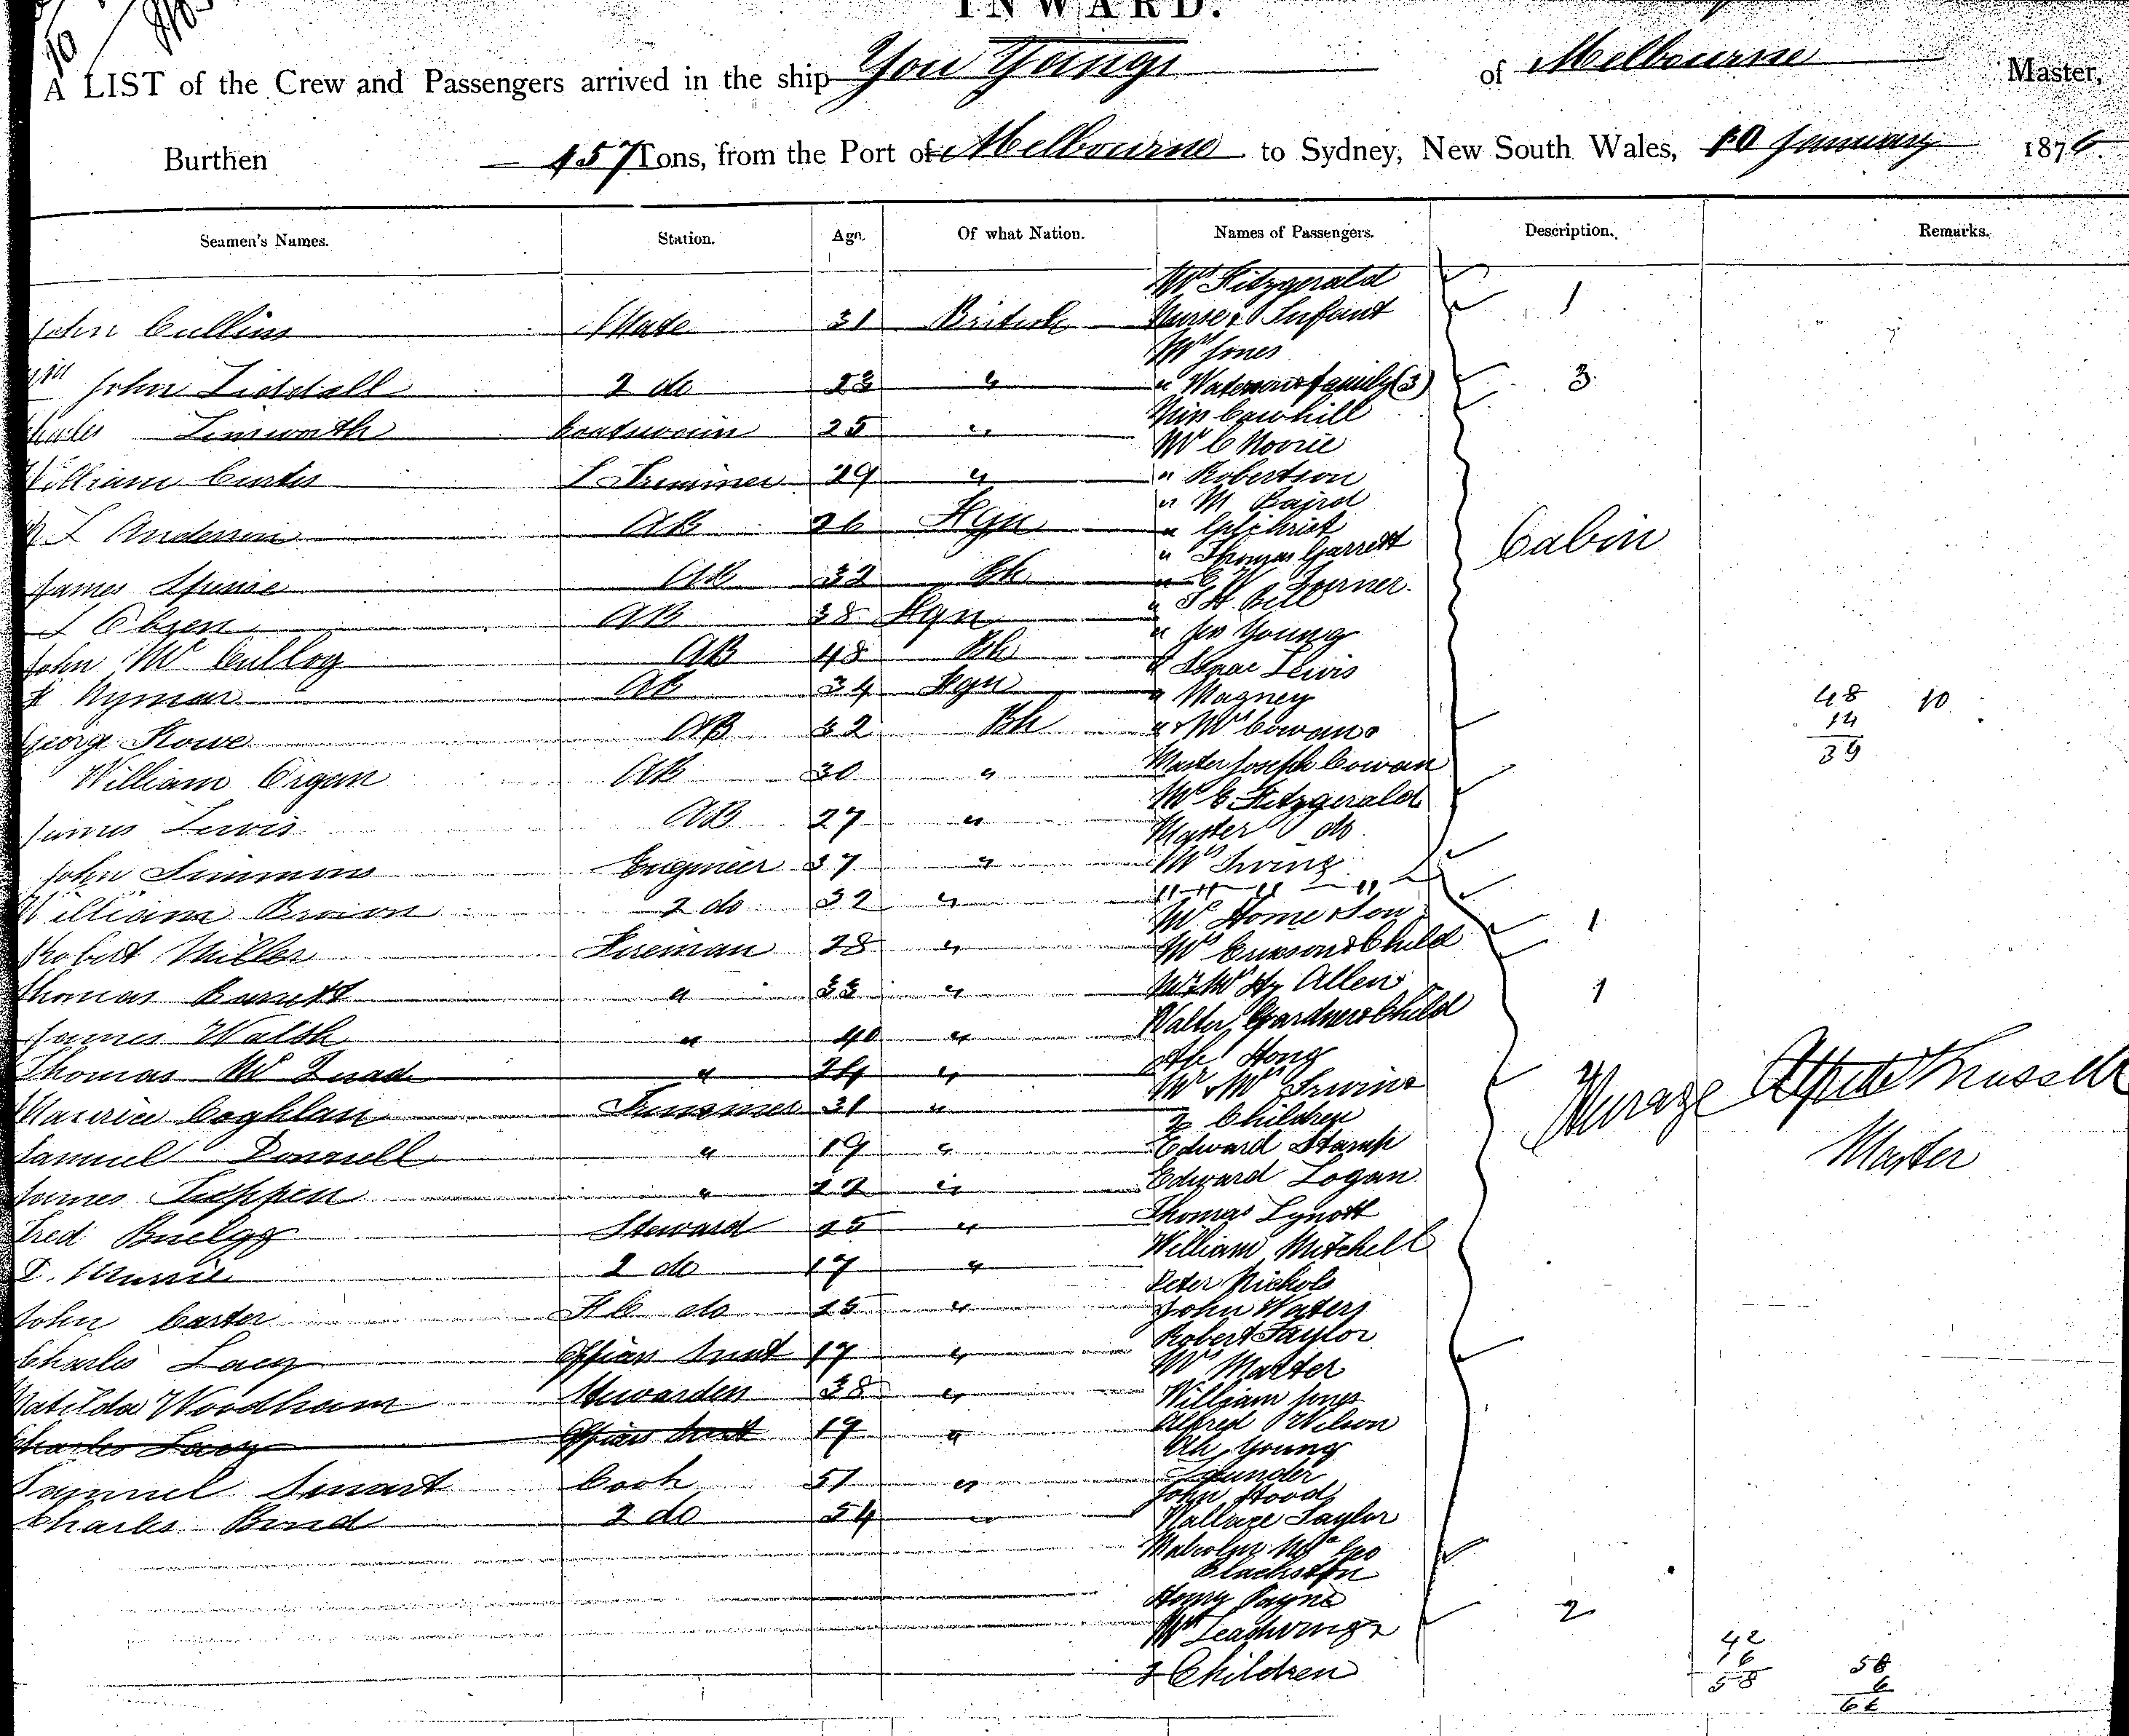 INWARD.
A LIST of the Crew and Passengers arrived in the ship You Yangs of Melbourne Master,
Burthen 457 Tons, from the Port of Melbourne to Sydney, New South Wales, 10 January 1876
Seamen's Names. Station. Age. Of what Nation. Names of Passengers. Description. Remarks.
Mrs Fitzgerald
John Cullins Mate 31 British Nurse & Infant 1
Mrs Jones
John Liddell 2 do 23 " " family (3) 3
Charles Boatswain 25 " Miss Cawhill
Mr C
William Curtis L Trimmer 29 " " Robertson
" M Baird
Anderson AB 26 Fgn " Gilchrist
" Thomas Garrett Cabin
James AB 32 Bh " Turner.
Olsen AB 38 Fgn " Bell
" Jas Young
John Mc Cullog AB 48 Bh " Isaac Lewis
Nyman AB 34 Fgn " Magney 48 10
14
George Rowe AB 32 Bh " & Mrs Cowan 39
William Organ AB 30 " Master Joseph Cowan
Mr C Fitzgerald
James Lewis AB 27 " Master do
John Simmons Engineer 37 " Mrs Irving
William Brown 2 do 32 "
Mr Home & Son 1
Robert Miller Fireman 28 " Mrs & Child
Thomas Barrett " 33 " Mr & Mrs Hy Allen 1
Walter Gardner & Child
James Walsh " 40 "
Thomas Mc " 24 " Ah Hong
Mr & Mrs Irvine
Maurice Coghlan Trimmer 31 " 2 Children Steerage Alfred Russell
Samuel Donnell " 19 " Edward Stamp Master
James Tuppen " 22 " Edward Logan
Fred Steward 25 " Thomas Lynott
William Mitchell
2 do 17 " Peter Nichols
John Carter F C do 25 " John Waters
Robert Taylor
Charles Lacy Officers Servt 17 " Mr Marter
Matilda Woodham Stewardess 38 " William Jones
Charles Lacy Officers Servt 17 " Alfred Wilson
Ah Young
Samuel Smart Cook 51 "
John Hood
Charles Bond 2 do 54 " Wallace Taylor
Malcolm
Blackston
Henry Payne 2
Mrs
2 Children
42
16
58
58
6
64